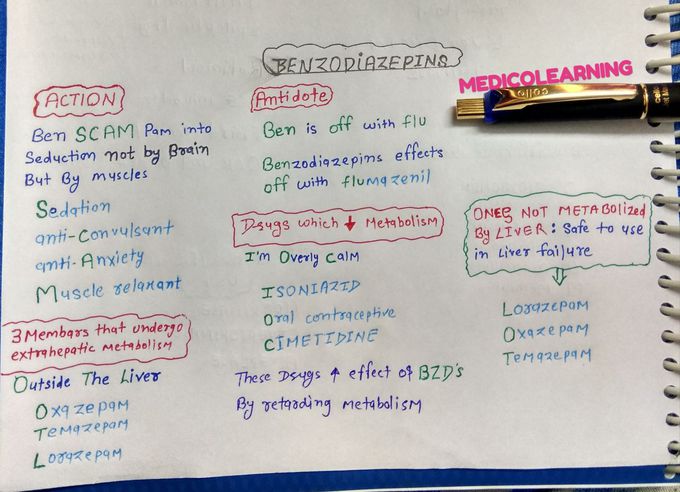 BENZODIAZEPINS
MEDICOLEARNING
cello
ACTION
Ben SCAM Pam into
Seduction not by Brain
But By muscles
Sedation
anti-Convulsant
anti-Anxiety
Muscle relaxant
3 Membars that undergo
extrahepatic metabolism
Outside The Liver
Oxazepam
Temazepam
Lorazepam
Antidote
Ben is off with flu
Benzodiazepins effects
off with flumazenil
Drugs which ↓ Metabolism
I'm Overly Calm
ISONIAZID
Oral contraceptive
CIMETIDINE
These Drugs ↑ effect of BZD's
By retarding metabolism
ONES NOT METABOlized
By LIVER: Safe to use
in Liver failure
Lorazepam
Oxazepam
Temazepam